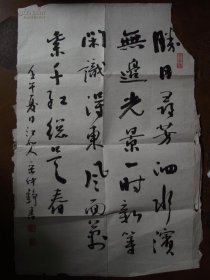 勝日尋芳泗水濱
無邊光景一時新等
閑識得東風面萬
紫千紅總是春
壬午夏日江